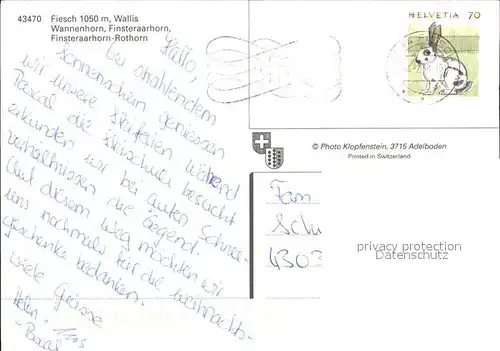 43470 Fiesch 1050 m, Wallis
Wannenhorn, Finsteraarhorn,
Finsteraarhorn-Rothorn
HELVETIA 70
Hallo,
bei strahlendem
Sonnenschein geniessen
wir unsere Skiferien während
Pascal die Skischule besucht
erkunden wir bei guten Schnee-
verhältnissen die Gegend.
Auf diesem Weg möchten wir
uns nochmals für die Weihnachts-
geschenke bedanken.
Viele Grüsse
© Photo Klopfenstein, 3715 Adelboden
Printed in Switzerland
Fam
Schu
4303
privacy protection
Datenschutz